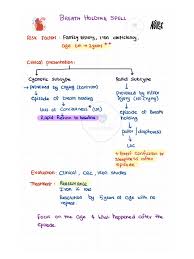 BREATH HOLDING SPELL
RISK FACTOR: Family history, iron deficiency,
age 6m → 2years **
Clinical presentation:
Cyanotic subtype
Pallid subtype
→ provoked by crying (tantrum)
→ provoked by minor
injury (no crying)
Episode of breath holding
Loss of Consciousness
Episode of breath
holding
Rapid Return to baseline
pallor
LOC
Evaluation: Clinical, CBC, Iron studies
Treatment: Reassurance
Iron if low
Resolution by 5 years of age with no
Focus on the Age & What Happened after the
episode.